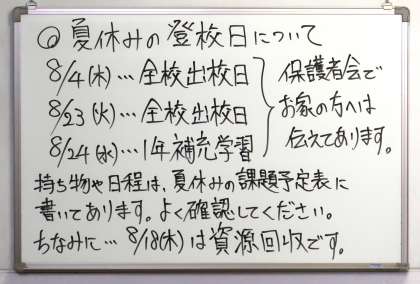 ◎ 夏休みの登校日について
8/4(木)…全校出校日
8/23(火)…全校出校日
8/24(水)…1年補充学習
保護者会で
お家の方へは
伝えてあります。
持ち物や日程は、夏休みの課題予定表に
書いてあります。よく確認してください。
ちなみに… 8/18(木)は資源回収です。